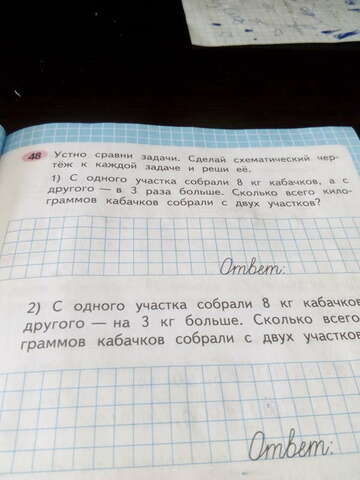 48 Устно сравни задачи. Сделай схематический чер-
тёж к каждой задаче и реши её.
1) С одного участка собрали 8 кг кабачков, а с
другого — в 3 раза больше. Сколько всего кило-
граммов кабачков собрали с двух участков?
Ответ:
2) С одного участка собрали 8 кг кабачков
другого — на 3 кг больше. Сколько всего
граммов кабачков собрали с двух участков
Ответ: